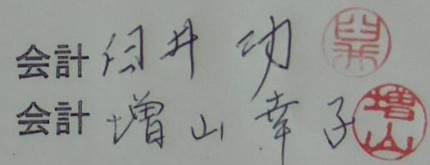 会計 臼井 功 臼井
会計 増山 幸子 増山